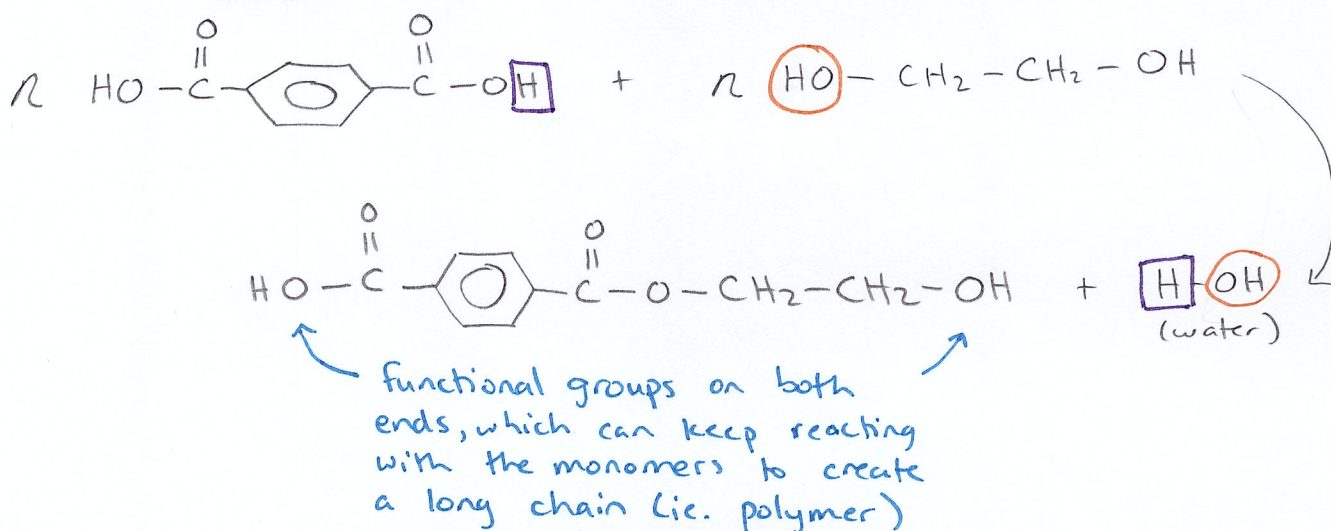 O O
|| ||
n HO – C – – C – OH + n HO – CH2 – CH2 – OH
O O
|| ||
HO – C – – C – O – CH2 – CH2 – OH + H – OH
(water)
functional groups on both
ends, which can keep reacting
with the monomers to create
a long chain (ie. polymer)